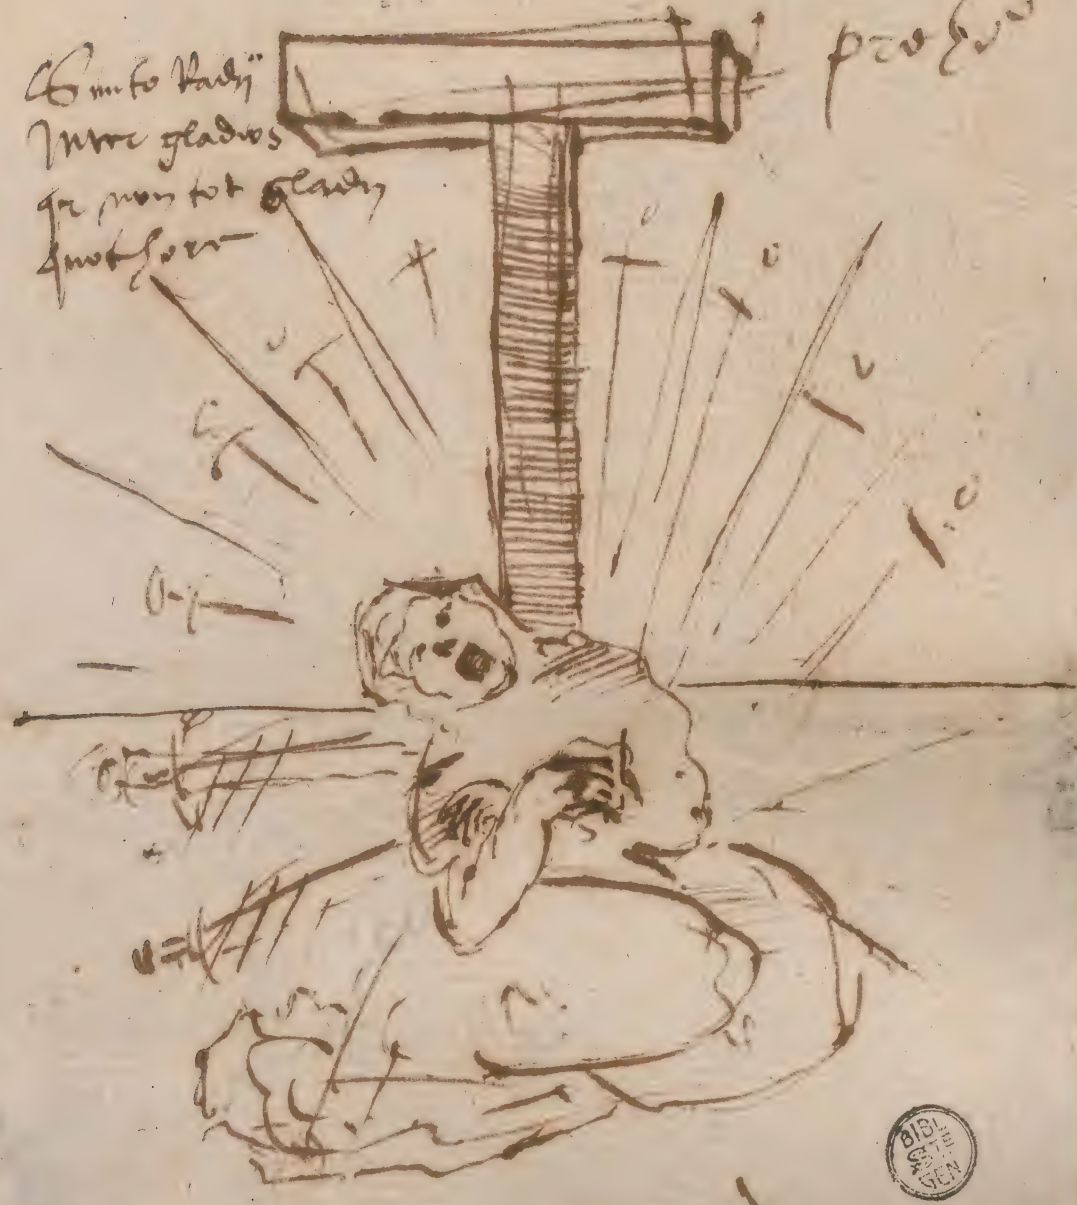 Sunto Radij
inter gladios
non tot gladij
quot hore
pro
BIBL
GEN